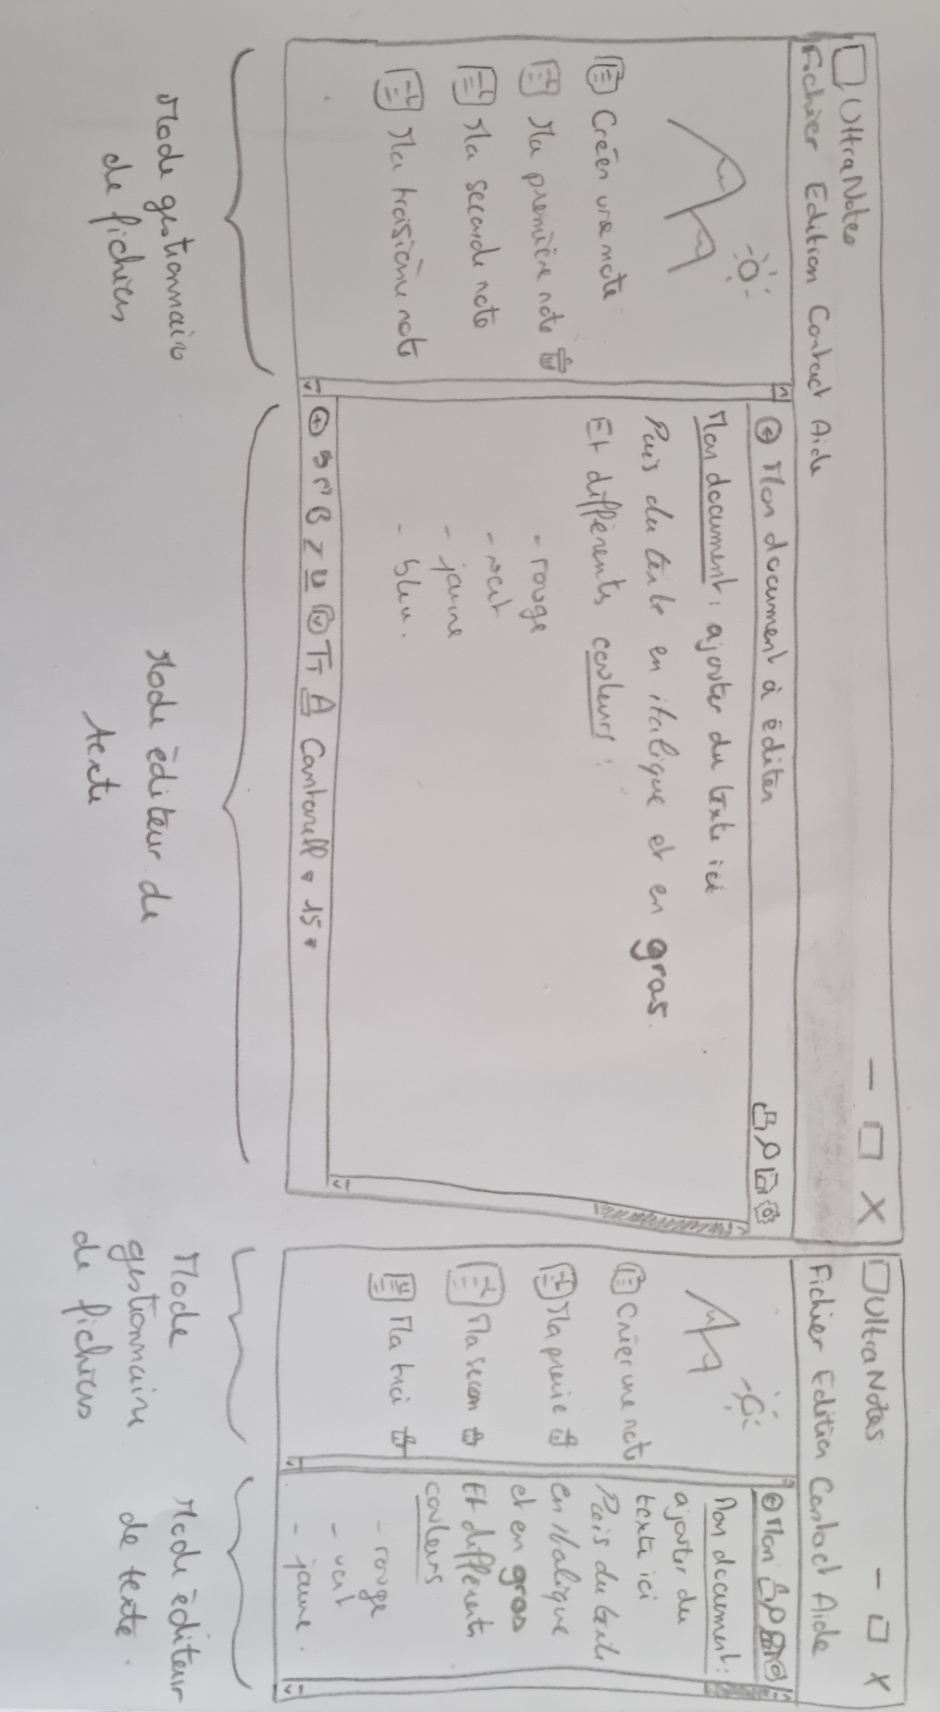 UltraNotes
Fichier Edition Contact Aide
Créer une note
Ma première note
Ma seconde note
Ma troisième note
Mon document à éditer
Mon document : ajouter du texte ici
Puis du texte en italique et en gras.
Et différents couleurs :
- rouge
- vert
- jaune
- bleu.
B I U TT A Cantarell 15
Mode gestionnaire
de fichiers
Mode éditeur de
texte
UltraNotes
Fichier Edition Contact Aide
Créer une note
Ma premie
Ma secon
Ma troi
Mon
Mon document :
ajouter du
texte ici
Puis du texte
en italique
et en gras
Et différents
couleurs
- rouge
- vert
- jaune.
Mode
gestionnaire
de fichiers
Mode éditeur
de texte.